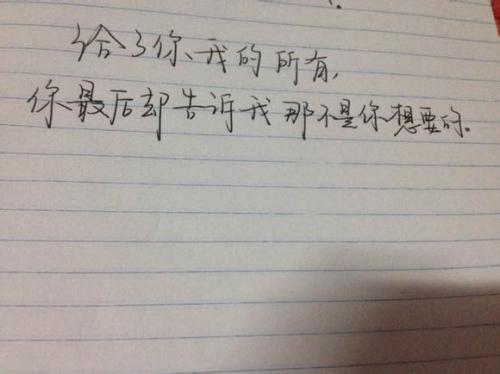 给了你、我的所有,
你最后却告诉我那不是你想要的.